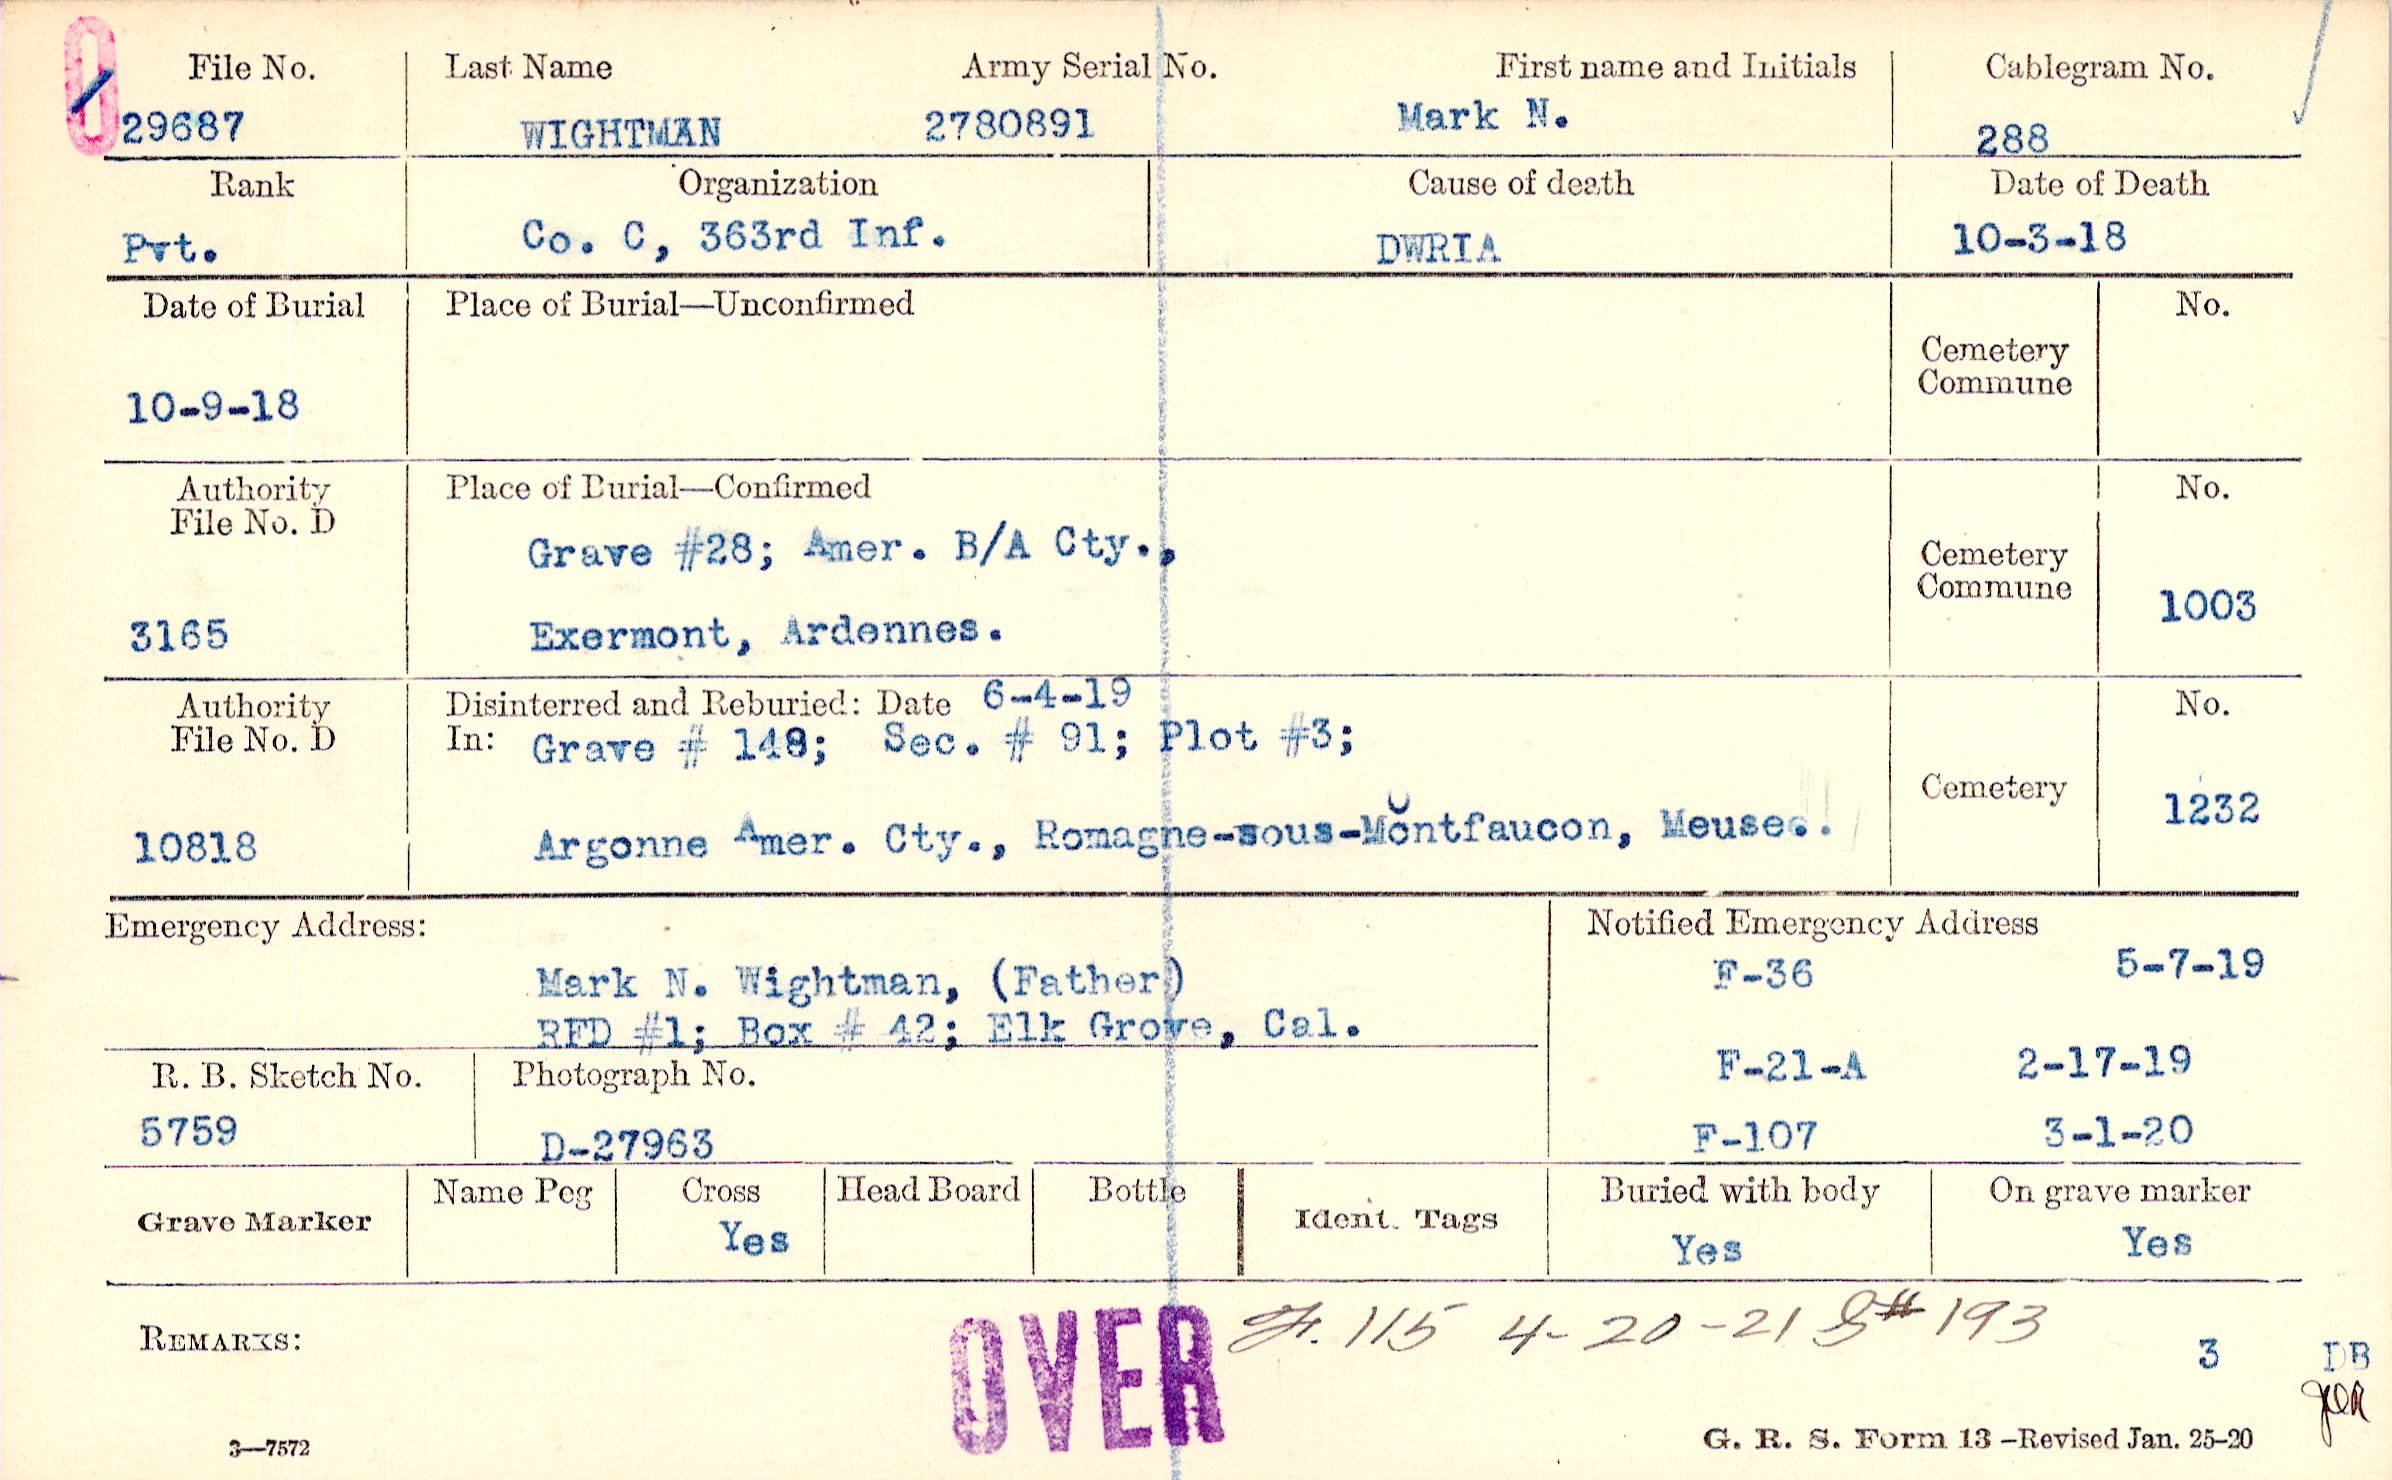 File No. Last Name Army Serial No. First name and Initials Cablegram No.
29687 WIGHTMAN 2780891 Mark N. 288
Rank Organization Cause of death Date of Death
Pvt. Co. C, 363rd Inf. DWRIA 10-3-18
Date of Burial Place of Burial—Unconfirmed No.
Cemetery
Commune
10-9-18
Authority Place of Burial—Confirmed No.
File No. D
Grave #28; Amer. B/A Cty.,
Cemetery
Commune
1003
3165 Exermont, Ardennes.
Authority Disinterred and Reburied: Date 6-4-19 No.
File No. D In: Grave # 148; Sec. # 91; Plot #3;
Cemetery 1232
10818 Argonne Amer. Cty., Romagne-sous-Montfaucon, Meuse..
Emergency Address: Notified Emergency Address
Mark N. Wightman, (Father) F-36 5-7-19
RFD #1; Box # 42; Elk Grove, Cal.
R. B. Sketch No. Photograph No. F-21-A 2-17-19
5759 D-27963 F-107 3-1-20
Name Peg Cross Head Board Bottle Buried with body On grave marker
Grave Marker Ident. Tags
Yes Yes Yes
OVER 115 4-20-21 # 193
REMARKS: 3 DB
3—7572 G. R. S. Form 13—Revised Jan. 25-20